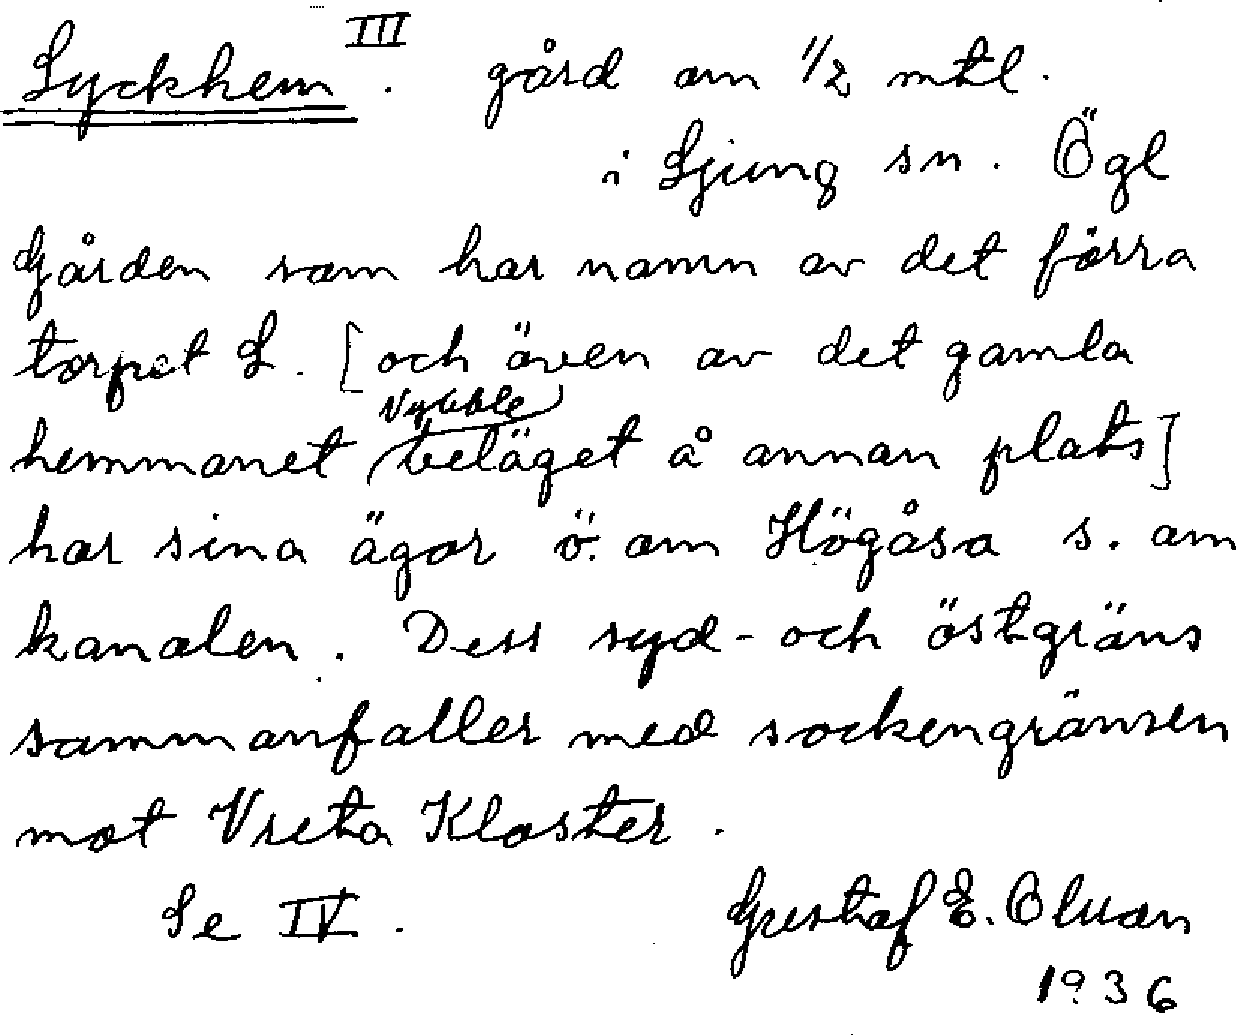 Lyckhem III. gård om 1/2 mtl.
i Ljung sn. Ögl
Gården som har namn av det förra
torpet L. [och även av det gamla
hemmanet Nybble beläget å annan plats]
har sina ägor ö. om Högåsa s. om
kanalen. Dess syd- och östgräns
sammanfaller med sockengränsen
mot Vreta Kloster.
Se IV. Gustaf E. Olsson
1936